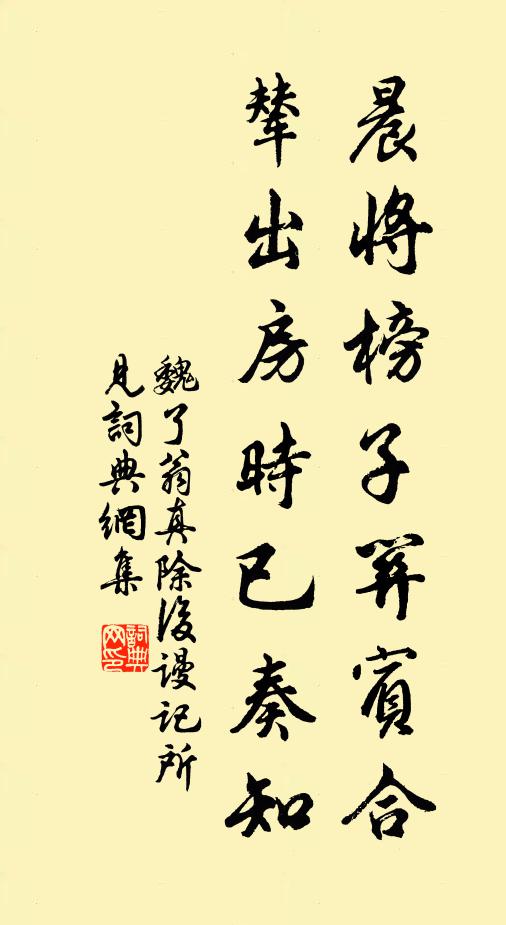 晨將榜子關賓合
輦出房時已奏知
魏了翁真除後謾記所
見詞典網集
詞典
网印